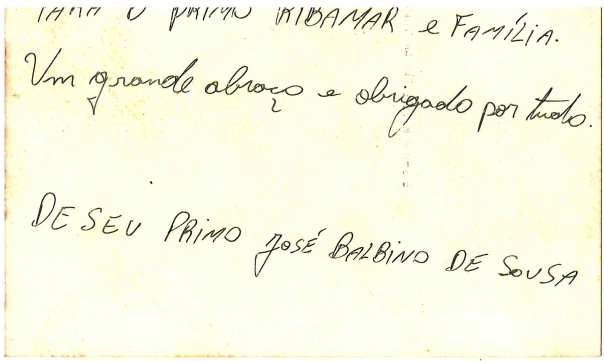 PARA O PRIMO RIBAMAR e FAMÍLIA.
Um grande abraço e obrigado por tudo.
DE SEU PRIMO JOSÉ BALBINO DE SOUSA